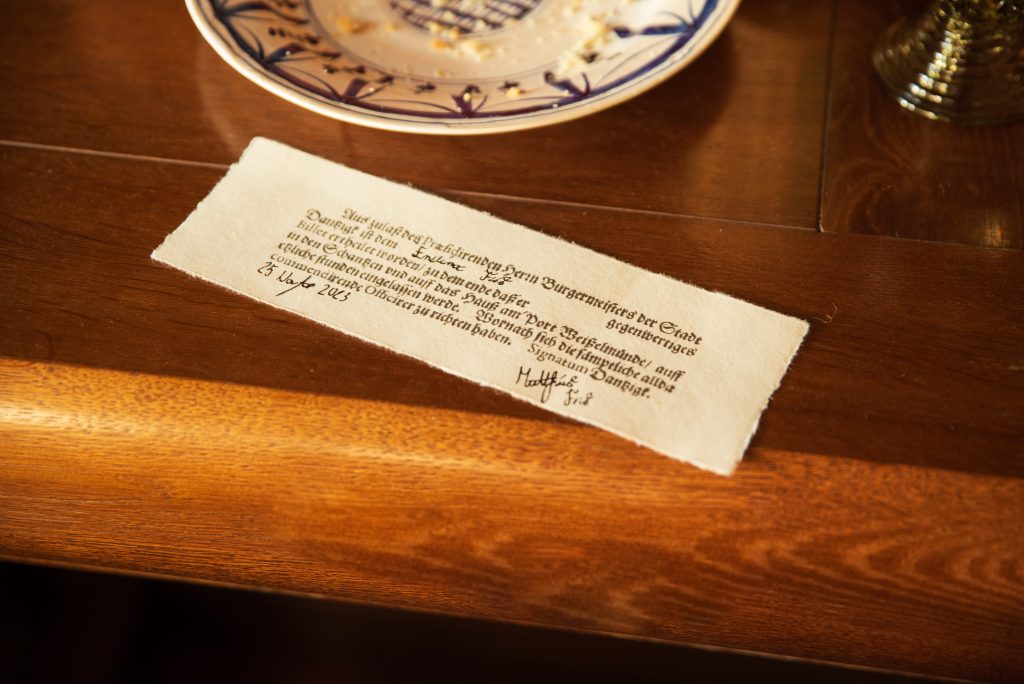 Aus zulaß des Præsidirenden Herrn Bürgermeisters der Stadt
Dantzigk ist dem gegenwertiges
billet ertheilet worden/ zu dem ende daß er
in den Schantzen und auff das Hauß am Port Weißelmünde/ auff
etzliche stunden eingelassen werde. Wornach sich die sämptliche allda
commendirende Officirer zu richten haben. Signatum Dantzigk.
25